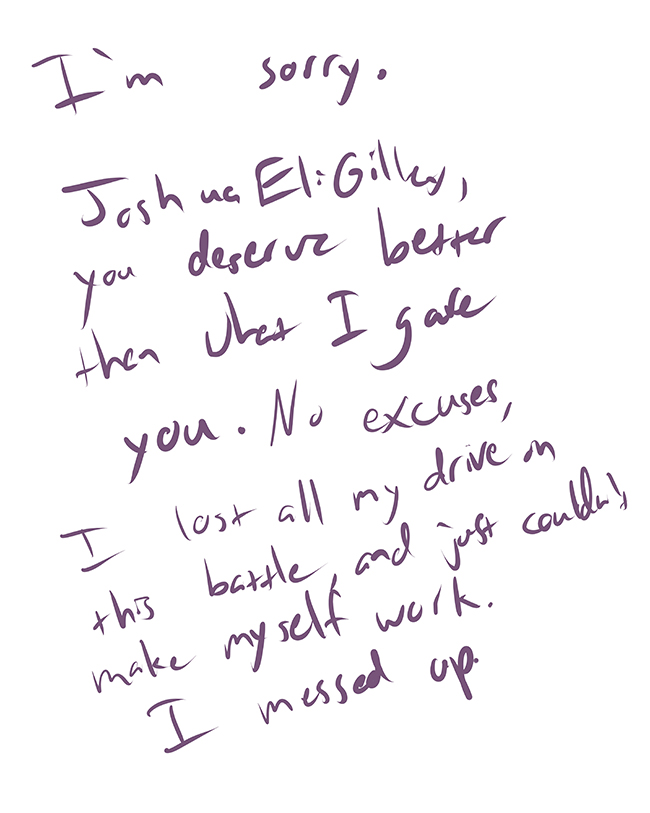 I'm sorry.
Joshua Eli Gilley,
you deserve better
then what I gave
you. No excuses,
I lost all my drive on
this battle, and just couldn't
make myself work.
I messed up.